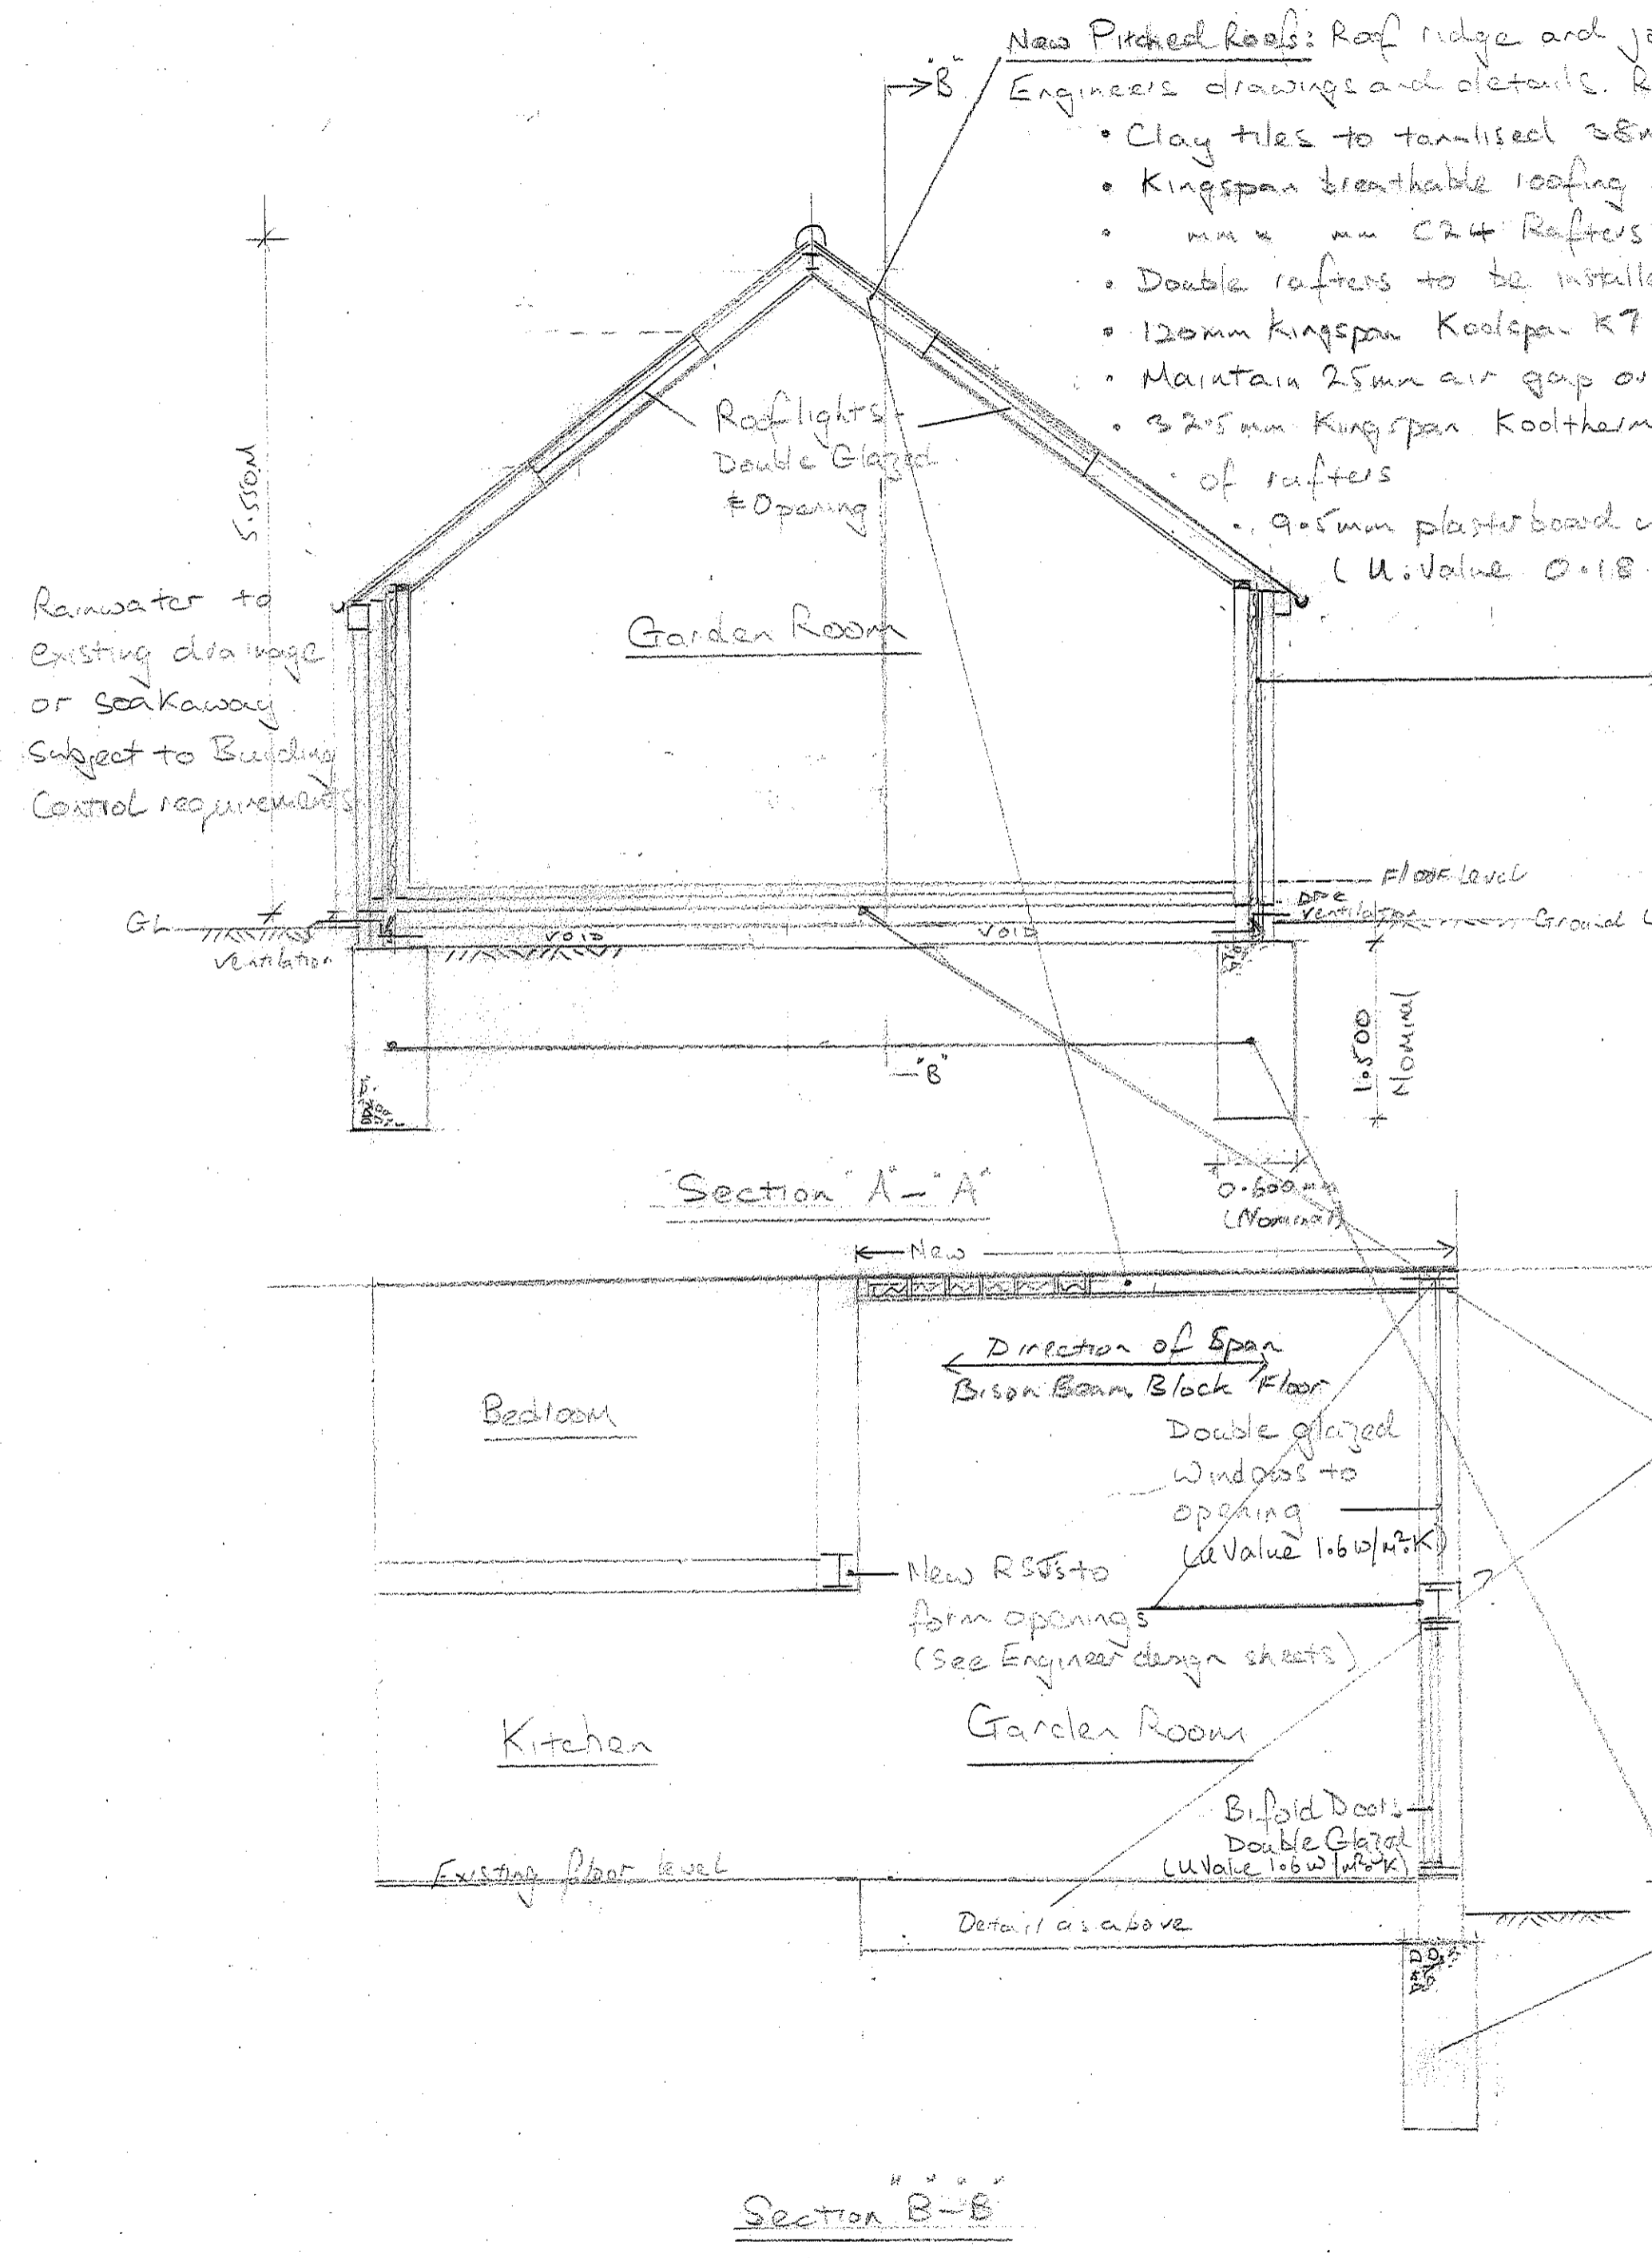 New Pitched Roofs: Roof ridge and
"B"
Engineers drawings and details.
• Clay tiles to tanalised 38
• Kingspan breathable roofing
• mm x mm C24 Rafters
• Double rafters to be
• 120mm Kingspan Koolspan K7
• Maintain 25mm air gap
• 32.5mm Kingspan Kooltherm
of rafters
• 9.5mm plasterboard
(U.Value 0.18
5.550M
Rooflights -
Double Glazed
& Opening
Garden Room
Rainwater to
existing drainage
or soakaway
subject to Building
Control requirements
Floor Level
DPC
ventilation
Ground
GL
ventilation
VOID
VOID
1.500
Nominal
"B"
Section "A" - "A"
0.600mm
(Nominal)
New
Direction of Span
Bison Beam Block Floor
Bedroom
Double glazed
windows to
opening
(U Value 1.6W/M².K)
New RSJ's to
form openings
(See Engineer design sheets)
?
Kitchen
Garden Room
Bifold Doors
Double Glazed
(U Value 1.6W/M².K)
Existing floor level
Detail as above
Section "B" - "B"